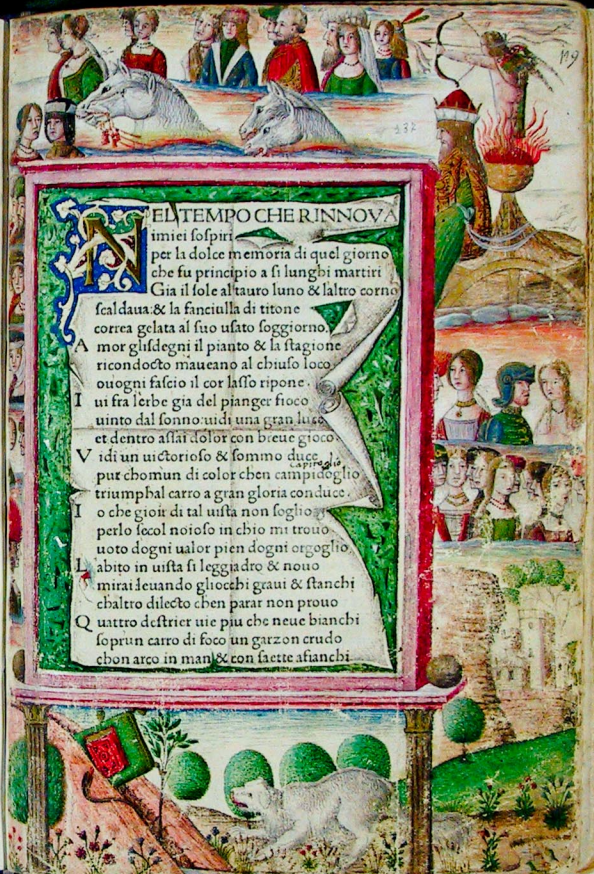 119
132
NEL TEMPO CHE RINNOVA
imiei sospiri
per la dolce memoria di quel giorno
che fu principio a si lunghi martiri
Gia il sole al tauro luno & laltro corno
scaldaua: & la fanciulla di titone
correa gelata al suo usato soggiorno.
A mor glisdegni il pianto & la stagione
ricondocto maueano al chiuso loco
ouiogni fascio il cor lasso ripone.
I ui fra lerbe gia del pianger fioco
uinto dal sonno: uidi una gran luce
et dentro assai dolor con breue gioco
V idi un uictorioso & sommo duce
Capitoglio
pur chomun di color chen campidoglio
triumphal carro a gran gloria conduce.
I o che gioir di tal uista non soglio
perlo secol noioso in chio mi trouo
uoto dogni ualor pien dogni orgoglio
L abito in uista si leggiadro & nouo
mirai leuando gliocchi graui & stanchi
chaltro dilecto chen parar non prouo
Q uattro destrier uie piu che neue bianchi
soprun carro di foco un garzon crudo
chon arco in man & con saette afianchi